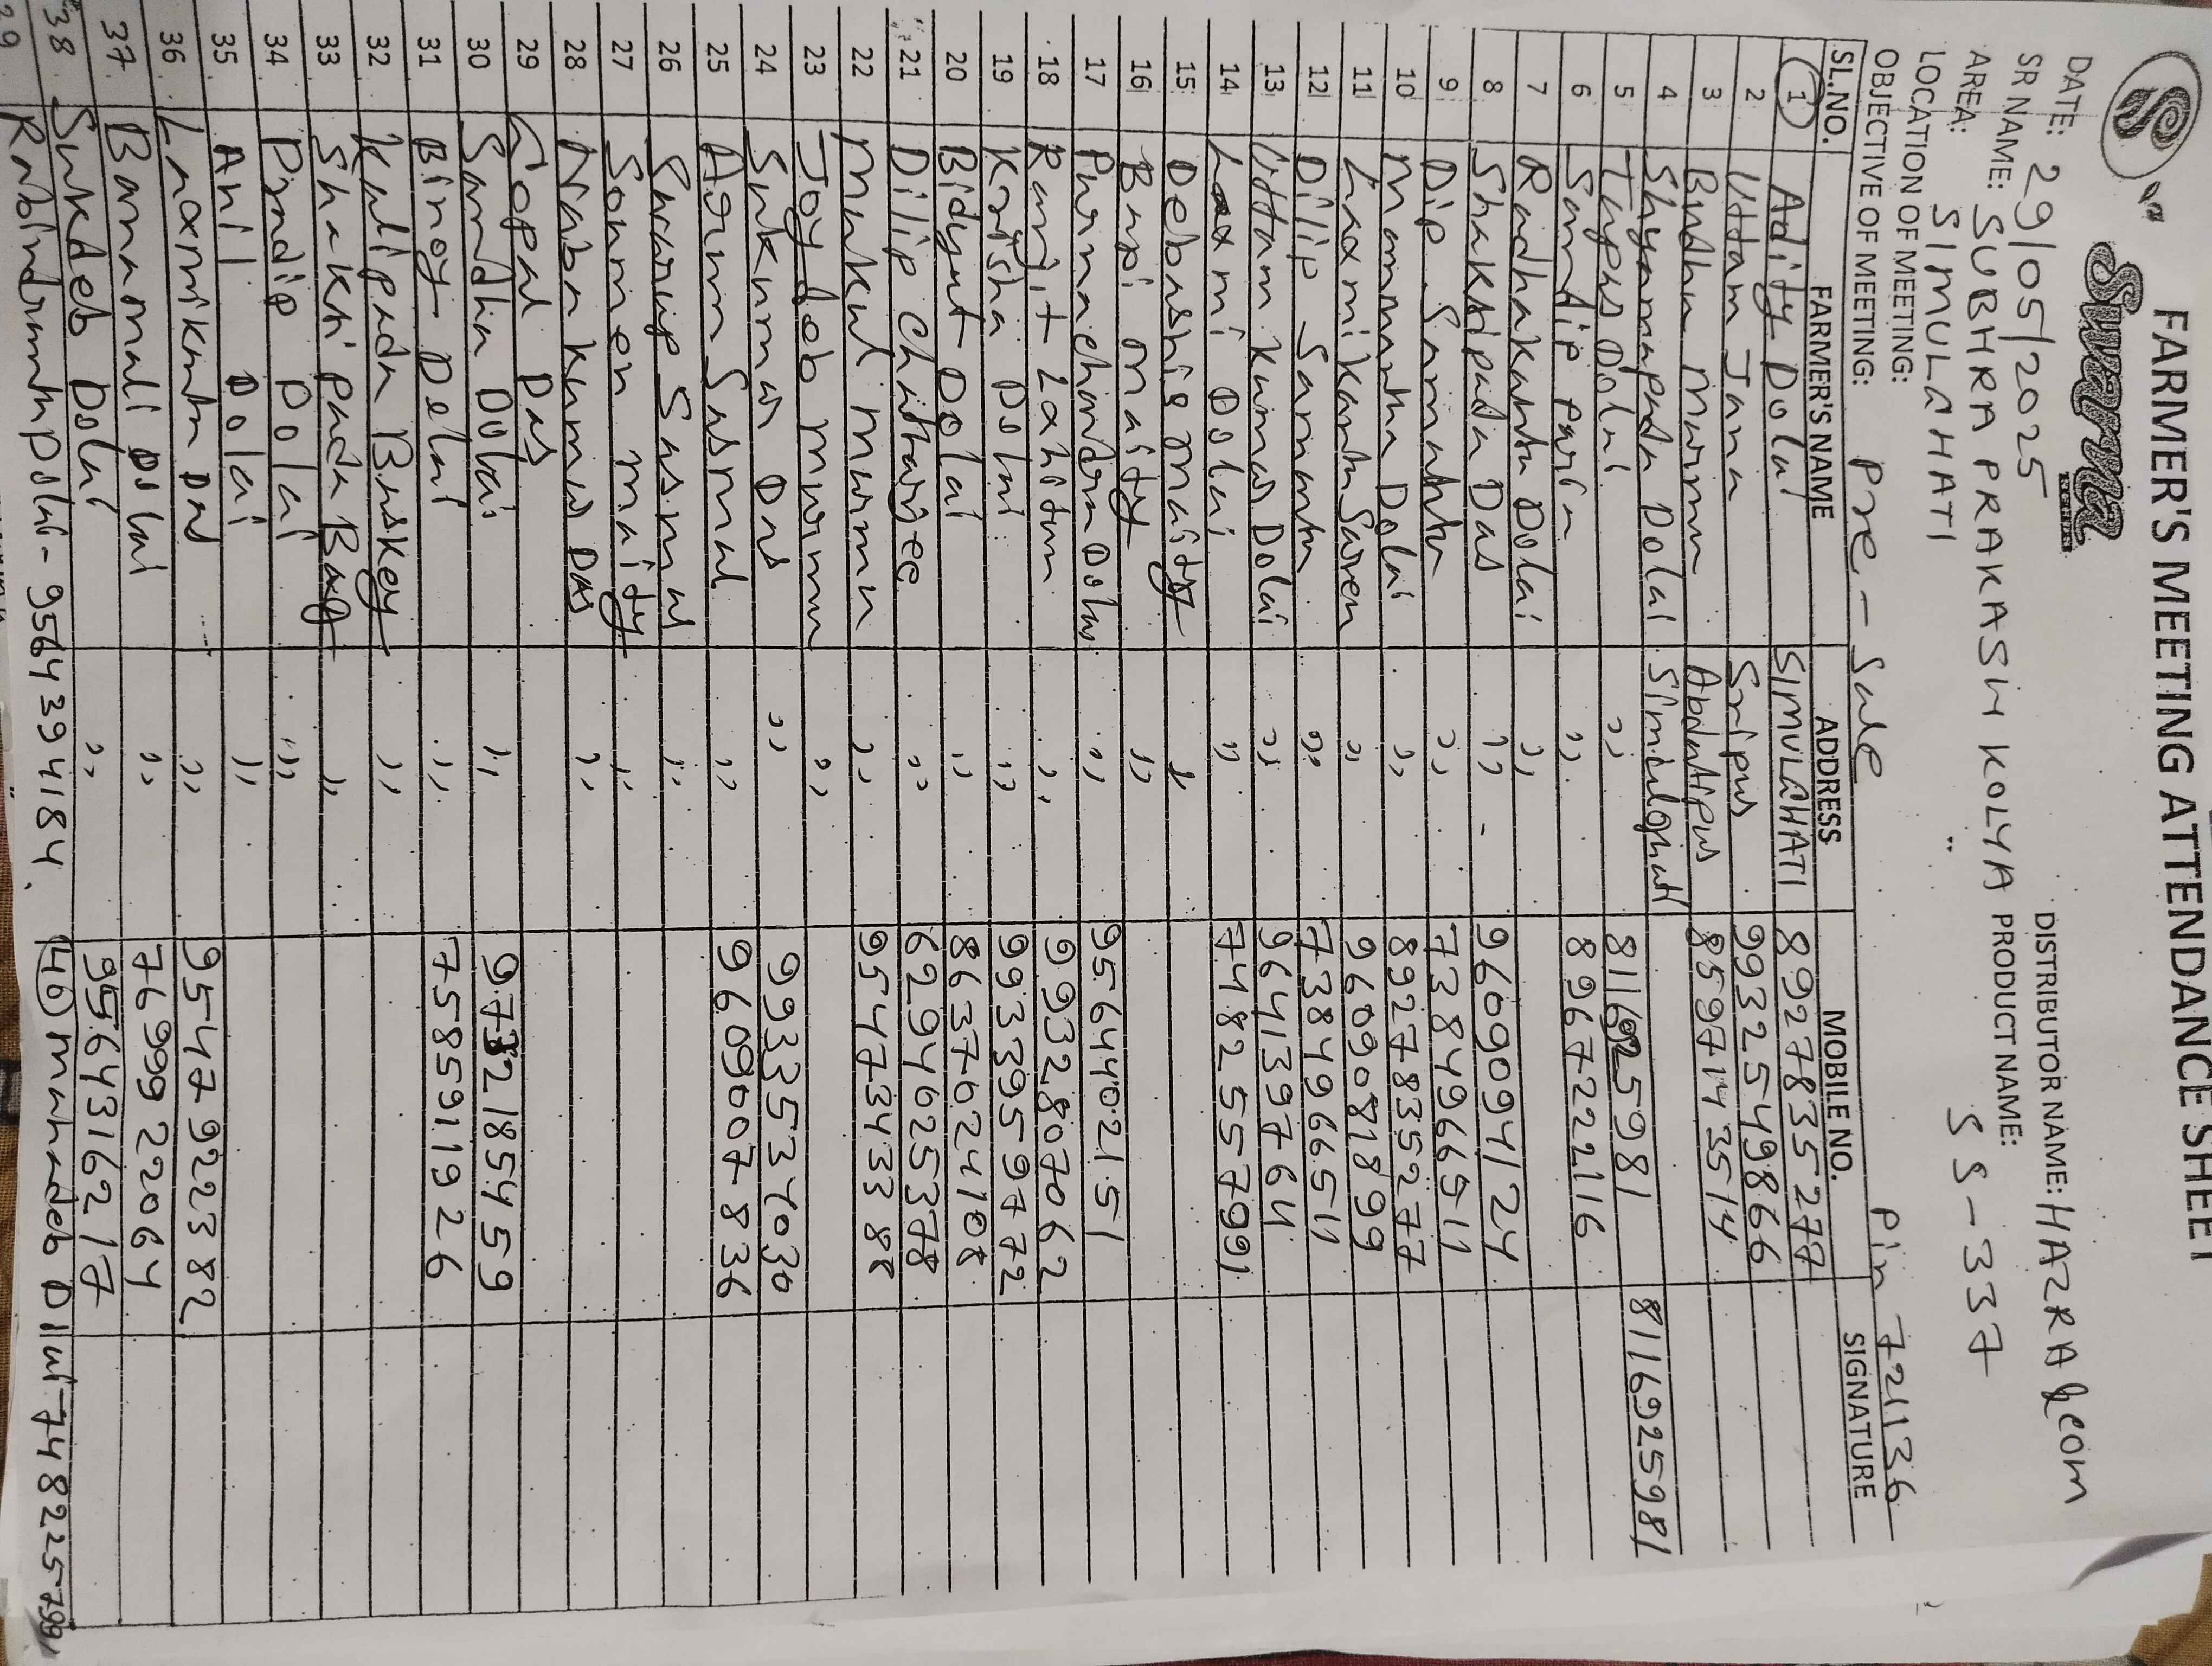 FARMER'S MEETING ATTENDANCE SHEET
Suvarna
DATE: 29/05/2025 DISTRIBUTOR NAME: HAZRA
SR NAME: SUBHRA PRAKASH KOLYA PRODUCT NAME: SS-337
AREA: SIMULAHATI
LOCATION OF MEETING:
OBJECTIVE OF MEETING: Pre-Sale Pin 721136
SL.NO. FARMER'S NAME ADDRESS MOBILE NO. SIGNATURE
1 Adity Dolai SIMULAHATI 8927835277
2 Uttam Jana Sripur 9932549866
3 Budhu Murmu 8597143514
4 Shyamapada Dolai 8116925981
5 Tapas Dolai ,, 8116925981
6 Sandip Paria ,, 8967222116
7 Radhakanta Dolai ,,
8 Shaktipada Das ,, 9609094124
9 Dip Samanta ,, 7384966511
10 Manmatha Dolai ,, 8927835277
11 Laxmikanta Saren ,, 9609081899
12 Dilip Samanta ,, 7384966511
13 Uttam Kumar Dolai ,, 9641397641
14 Laxmi Dolai ,, 7482557991
15 Debashis Maity ,,
16 Bapi Maity ,,
17 Purnachandra Dolai ,, 9564402151
18 Ranjit ,, 9932807062
19 Krisha Dolai ,, 9933959772
20 Bidyut Dolai ,, 8637024108
21 Dilip Chatharjee ,, 6294625378
22 Mukul Murmu ,, 9547343388
23 Joydeb Murmu ,,
24 Sukumar Das ,, 9933534030
25 Arun Sasmal ,, 9609007836
26 Swarup Sasmal ,,
27 Soumen Maity ,,
28 Naba Kumar Das ,,
29 Gopal Das
30 Sandha Dolai ,, 9732185459
31 Binoy Dolai ,, 7585911926
32 Kalipada Baskey ,,
33 Shaktipada Bag ,,
34 Pradip Dolai ,,
35 Anil Dolai ,,
36 Laxmikanta Das ,, 9547922382
37 Banamali Dolai ,, 7699922064
38 Sukdeb Dolai ,, 9564316217
39 Rabindranath Dolai - 9564394184. 40 Mahadeb Dolai